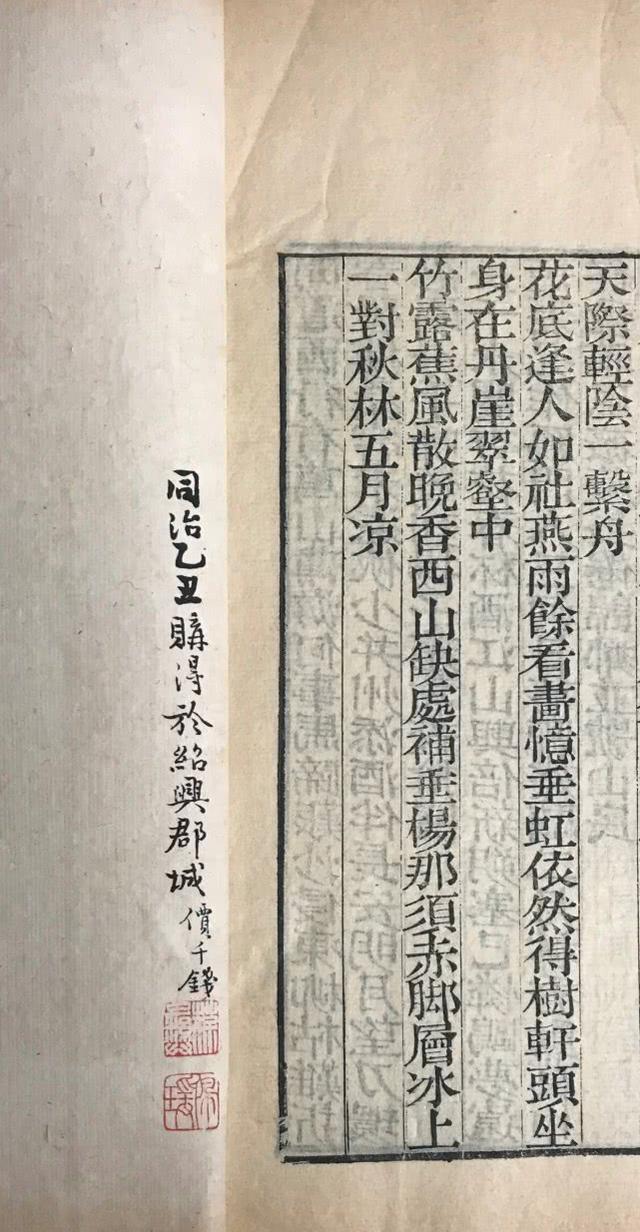 天際輕陰一繫舟
花底逢人如社燕雨餘看畵憶垂虹依然得樹軒頭坐
身在丹崖翠壑中
竹露蕉風散晚香西山缺處補垂楊那須赤脚層冰上
一對秋林五月凉
同治乙丑購得於紹興郡城價千錢